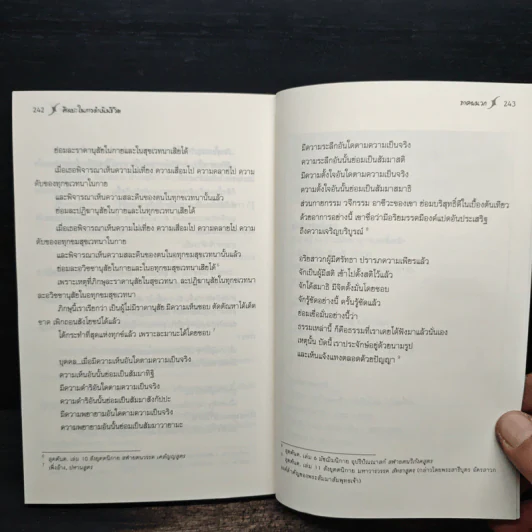 242 ศิลปะในการดำเนินชีวิต
ย่อมละราคานุสัยในกายและในสุขเวทนาเสียได้
เมื่อเธอพิจารณาเห็นความไม่เที่ยง ความเสื่อมไป ความคลายไป ความ
ดับของทุกขเวทนาในกาย
และพิจารณาเห็นความสละคืนของตนในทุกขเวทนานั้นแล้ว
ย่อมละปฏิฆานุสัยในกายและในทุกขเวทนาเสียได้
เมื่อเธอพิจารณาเห็นความไม่เที่ยง ความเสื่อมไป ความคลายไป ความ
ดับของอทุกขมสุขเวทนาในกาย
และพิจารณาเห็นความสละคืนของตนในอทุกขมสุขเวทนานั้นแล้ว
ย่อมละอวิชชานุสัยในกายและในอทุกขมสุขเวทนาเสียได้
เพราะเหตุที่ภิกษุละราคานุสัยในสุขเวทนา ละปฏิฆานุสัยในทุกขเวทนา
ละอวิชชานุสัยในอทุกขมสุขเวทนา
ภิกษุนี้เราเรียกว่า เป็นผู้ไม่มีราคานุสัย มีความเห็นชอบ ตัดตัณหาได้เด็ด
ขาด เพิกถอนสังโยชน์ได้แล้ว
ได้กระทำที่สุดแห่งทุกข์แล้ว เพราะละมานะได้โดยชอบ 7
บุคคล...เมื่อมีความเห็นอันใดตามความเป็นจริง
ความเห็นอันนั้นย่อมเป็นสัมมาทิฐิ
มีความดำริอันใดตามความเป็นจริง
ความดำริอันนั้นย่อมเป็นสัมมาสังกัปปะ
มีความพยายามอันใดตามความเป็นจริง
ความพยายามอันนั้นย่อมเป็นสัมมาวายามะ
สุตตันต. เล่ม 10 สังยุตตนิกาย สฬายตนวรรค
เพิ่งอ้าง, ปหานสูตร
243
มีความระลึกอันใดตามความเป็นจริง
ความระลึกอันนั้นย่อมเป็นสัมมาสติ
มีความตั้งใจอันใดตามความเป็นจริง
ความตั้งใจอันนั้นย่อมเป็นสัมมาสมาธิ
ส่วนกายกรรม วจีกรรม อาชีวะของเขา ย่อมบริสุทธิ์ดีในเบื้องต้นเทียว
ด้วยอาการอย่างนี้ เขาชื่อว่ามีอริยมรรคมีองค์แปดอันประเสริฐ
ถึงความเจริญบริบูรณ์ 8
อริยสาวกผู้มีศรัทธา ปรารภความเพียรแล้ว
จักเป็นผู้มีสติ เข้าไปตั้งสติไว้แล้ว
จักได้สมาธิ มีจิตตั้งมั่นโดยชอบ
จักรู้ชัดอย่างนี้ ครั้นรู้ชัดแล้ว
ย่อมเชื่อมั่นอย่างนี้ว่า
ธรรมเหล่านี้ ก็คือธรรมที่เราเคยได้ฟังมาแล้วนั่นเอง
เหตุนั้น บัดนี้ เราประจักษ์อยู่ด้วยนามรูป
และเห็นแจ้งแทงตลอดด้วยปัญญา 9
8 สุตตันต. เล่ม 6 มัชฌิมนิกาย อุปริปัณณาสก์
9 สุตตันต. เล่ม 11 สังยุตตนิกาย มหาวารวรรค